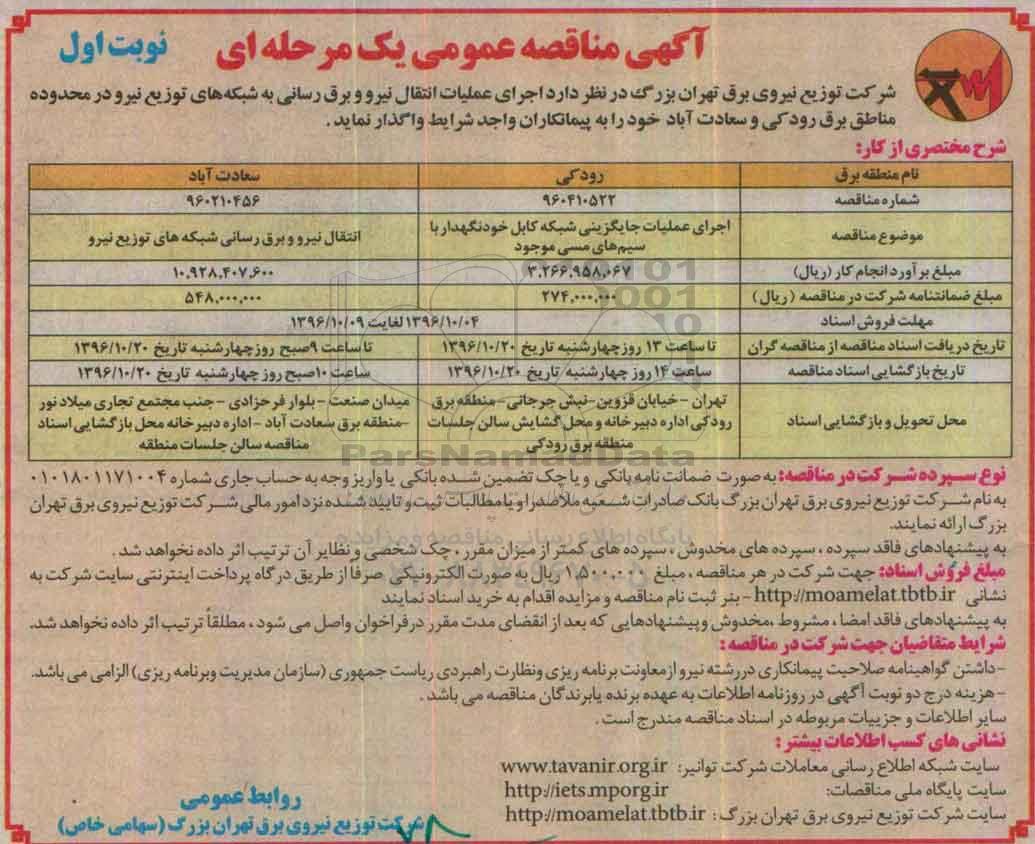 آگهی مناقصه عمومی یک مرحله ای
نوبت اول
شرکت توزیع نیروی برق تهران بزرگ در نظر دارد اجرای عملیات انتقال نیرو و برق رسانی به شبکه های توزیع نیرو در محدوده
مناطق برق رودکی و سعادت آباد خود را به پیمانکاران واجد شرایط واگذار نماید.
شرح مختصری از کار:
نام منطقه برق رودکی سعادت آباد
شماره مناقصه ۹۶۰۴۱۰۵۲۲ ۹۶۰۲۱۰۴۵۶
موضوع مناقصه اجرای عملیات جایگزینی شبکه کابل خودنگهدار با
سیم‌های مسی موجود انتقال نیرو و برق رسانی شبکه های توزیع نیرو
مبلغ برآورد انجام کار (ریال) ۳.۲۶۶.۹۵۸.۰۶۷ ۱۰.۹۲۸.۴۰۷.۶۰۰
مبلغ ضمانتنامه شرکت در مناقصه (ریال) ۲۷۴.۰۰۰.۰۰۰ ۵۴۸.۰۰۰.۰۰۰
مهلت فروش اسناد ۱۳۹۶/۱۰/۰۴ لغایت ۱۳۹۶/۱۰/۰۹
تاریخ دریافت اسناد مناقصه از مناقصه گران تا ساعت ۱۳ روز چهارشنبه تاریخ ۱۳۹۶/۱۰/۲۰ تا ساعت ۹ صبح روز چهارشنبه تاریخ ۱۳۹۶/۱۰/۲۰
تاریخ بازگشایی اسناد مناقصه ساعت ۱۴ روز چهارشنبه تاریخ ۱۳۹۶/۱۰/۲۰ ساعت ۱۰ صبح روز چهارشنبه تاریخ ۱۳۹۶/۱۰/۲۰
محل تحویل و بازگشایی اسناد تهران - خیابان قزوین - نبش جرجانی - منطقه برق
رودکی اداره دبیرخانه و محل گشایش سالن جلسات
منطقه برق رودکی
میدان صنعت - بلوار فرحزادی - جنب مجتمع تجاری میلاد نور
- منطقه برق سعادت آباد - اداره دبیرخانه محل بازگشایی اسناد
مناقصه سالن جلسات منطقه
ParsNamadData
نوع سپرده شرکت در مناقصه: به صورت ضمانت نامه بانکی و یا چک تضمین شده بانکی یا واریز وجه به حساب جاری شماره ۰۱۰۱۸۰۱۱۷۱۰۰۴
به نام شرکت توزیع نیروی برق تهران بزرگ بانک صادرات شعبه ملاصدرا و یا مطالبات ثبت و تایید شده نزد امور مالی شرکت توزیع نیروی برق تهران
بزرگ ارائه نمایند.
پایگاه اطلاع رسانی مناقصه و مزایده
به پیشنهادهای فاقد سپرده، سپرده های مخدوش، سپرده های کمتر از میزان مقرر، چک شخصی و نظایر آن ترتیب اثر داده نخواهد شد.
مبلغ فروش اسناد: جهت شرکت در هر مناقصه، مبلغ ۱.۵۰۰.۰۰۰ ریال به صورت الکترونیکی صرفا از طریق درگاه پرداخت اینترنتی سایت شرکت به
نشانی http://moamelat.tbtb.ir - بنر ثبت نام مناقصه و مزایده اقدام به خرید اسناد نمایند
به پیشنهادهای فاقد امضا، مشروط، مخدوش و پیشنهادهایی که بعد از انقضای مدت مقرر در فراخوان واصل می شود، مطلقاً ترتیب اثر داده نخواهد شد.
شرایط متقاضیان جهت شرکت در مناقصه:
-داشتن گواهینامه صلاحیت پیمانکاری در رشته نیرو از معاونت برنامه ریزی ونظارت راهبردی ریاست جمهوری (سازمان مدیریت وبرنامه ریزی) الزامی می باشد.
-هزینه درج دو نوبت آگهی در روزنامه اطلاعات به عهده برنده یابرندگان مناقصه می باشد.
سایر اطلاعات و جزییات مربوطه در اسناد مناقصه مندرج است.
نشانی های کسب اطلاعات بیشتر:
سایت شبکه اطلاع رسانی معاملات شرکت توانیر: www.tavanir.org.ir
سایت پایگاه ملی مناقصات: http://iets.mporg.ir
سایت شرکت توزیع نیروی برق تهران بزرگ: http://moamelat.tbtb.ir
روابط عمومی
شرکت توزیع نیروی برق تهران بزرگ (سهامی خاص)